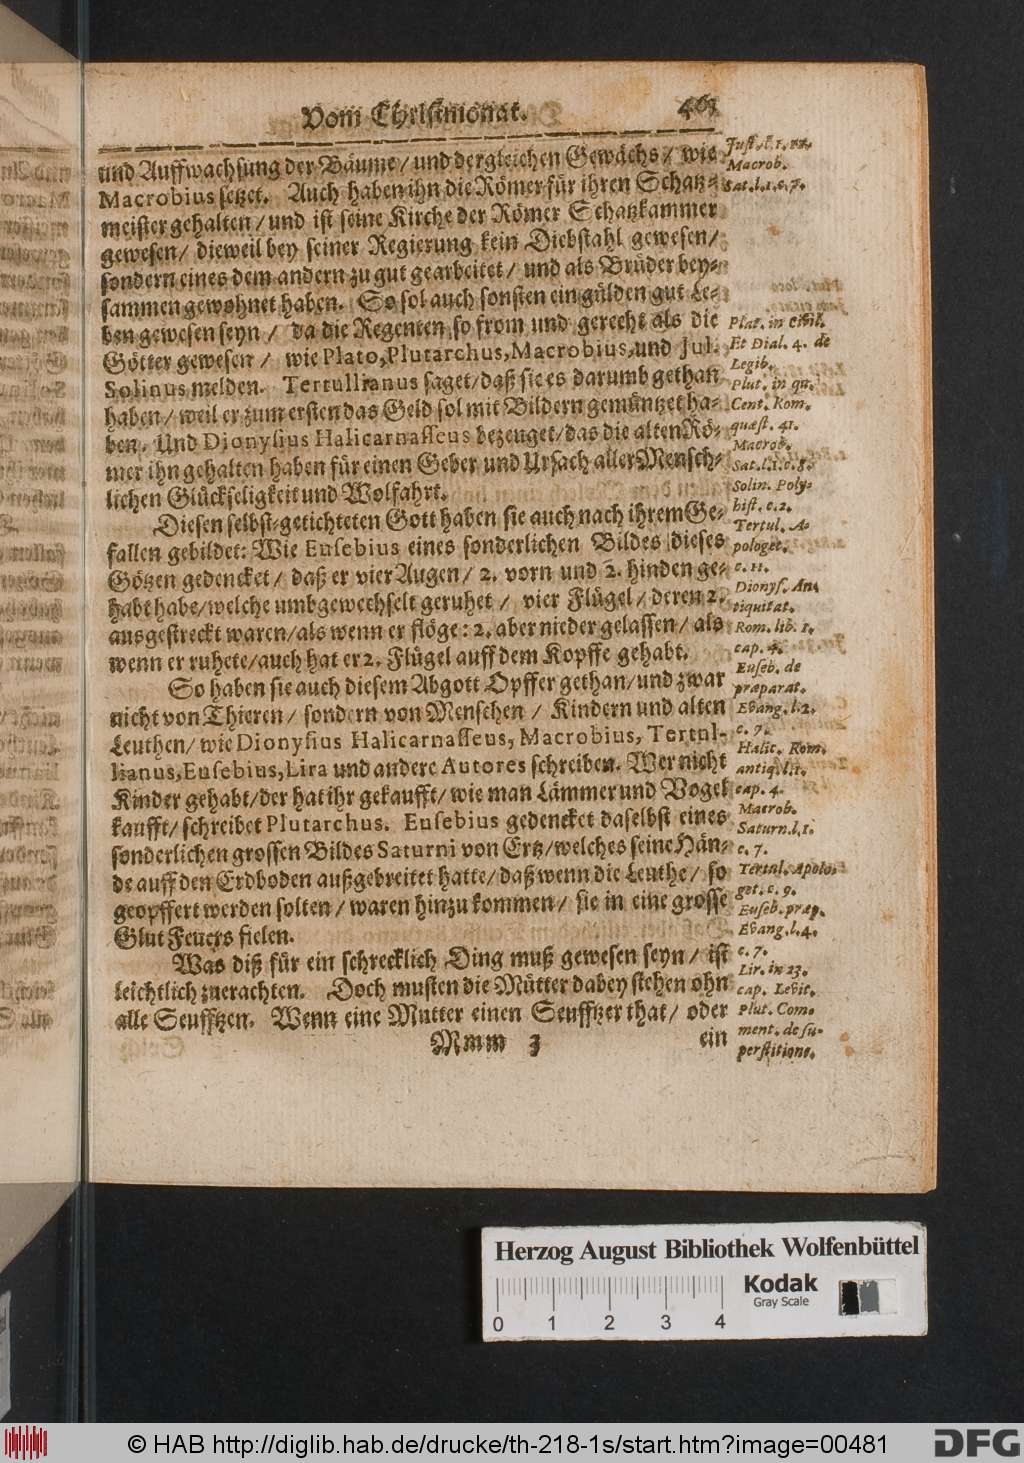 Vom Christmonat. 461
und Auffwachsung der Bäume/ und dergleichen Gewächs/ wie
Macrobius setzet. Auch haben ihn die Römer für ihren Schatz-
meister gehalten/ und ist seine Kirche der Römer Schatzkammer
gewesen/ dieweil bey seiner Regierung kein Diebstahl gewesen/
sondern eines dem andern zu gut gearbeitet/ und als Brüder bey-
sammen gewohnet haben. So sol auch sonsten ein gülden gut Le-
ben gewesen seyn/ da die Regenten so from und gerecht als die
Götter gewesen/ wie Plato, Plutarchus, Macrobius, und Jul.
Solinus melden. Tertullianus saget/ daß sie es darumb gethan
haben/ weil er zum ersten das Geld sol mit Bildern gemüntzet ha-
ben. Und Dionysius Halicarnasseus bezeuget/ das die alten Rö-
mer ihn gehalten haben für einen Geber und Ursach aller Mensch-
lichen Glückseligkeit und Wolfahrt.
Diesen selbst-getichteten Gott haben sie auch nach ihrem Ge-
fallen gebildet: Wie Eusebius eines sonderlichen Bildes dieses
Götzen gedencket/ daß er vier Augen/ 2. vorn und 2. hinden ge-
habt habe/ welche umbgewechselt geruhet/ vier Flügel/ deren 2.
ausgestreckt waren/ als wenn er flöge: 2. aber nieder gelassen/ als
wenn er ruhete/ auch hat er 2. Flügel auff dem Kopffe gehabt.
So haben sie auch diesem Abgott Opffer gethan/ und zwar
nicht von Thieren/ sondern von Menschen/ Kindern und alten
Leuthen/ wie Dionysius Halicarnasseus, Macrobius, Tertul-
lianus, Eusebius, Lira und andere Autores schreiben. Wer nicht
Kinder gehabt/ der hat ihr gekaufft/ wie man Lämmer und Vogel
kaufft/ schreibet Plutarchus. Eusebius gedencket daselbst eines
sonderlichen grossen Bildes Saturni von Ertz/ welches seine Hän-
de auff den Erdboden außgebreitet hatte/ daß wenn die Leuthe/ so
geopffert werden solten/ waren hinzu kommen/ sie in eine grosse
Glut Feuers fielen.
Was diß für ein schrecklich Ding muß gewesen seyn/ ist
leichtlich zuerachten. Doch musten die Mütter dabey stehen ohn
alle Seufftzen. Wenn eine Mutter einen Seufftzer that/ oder
Mmm 3 ein
Just. l.
Macrob.
Sat. l. 1. c. 7.
Plat. in civil.
Et Dial. 4. de
Legib.
Plut. in qu.
Cent. Rom.
quæst. 41.
Macrob.
Sat. l. 1. c. 8.
Solin. Poly-
hist. c. 2.
Tertul. A-
pologet.
c. 11.
Dionys. An-
tiquitat.
Rom. lib. 1.
cap. 4.
Euseb. de
præparat.
Evang. l. 2.
c. 7.
Halic. Rom.
antiq. l. 1.
cap. 4.
Macrob.
Saturn. l. 1.
c. 7.
Tertul. Apolo-
get. c. 9.
Euseb. præp.
Evang. l. 4.
c. 7.
Lir. in 23.
cap. Levit.
Plut. Com-
ment. de su-
perstitione.
Herzog August Bibliothek Wolfenbüttel
Kodak
Gray Scale
0 1 2 3 4
© HAB http://diglib.hab.de/drucke/th-218-1s/start.htm?image=00481
DFG